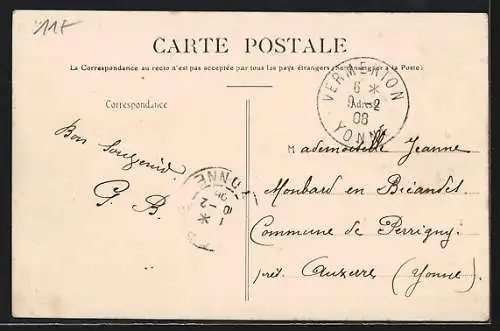 117
CARTE POSTALE
La Correspondance au recto n'est pas acceptée par tous les pays étrangers (Se renseigner à la Poste)
Correspondance
Adresse
VERMENTON
6 *
9 - 2
08
YONNE
Bon Souvenir.
G. B.
YONNE
10 - 2
1 *
Mademoiselle Jeanne
Monbard en Béandes
Commune de Perrigny
prèt. Auxerre (Yonne)